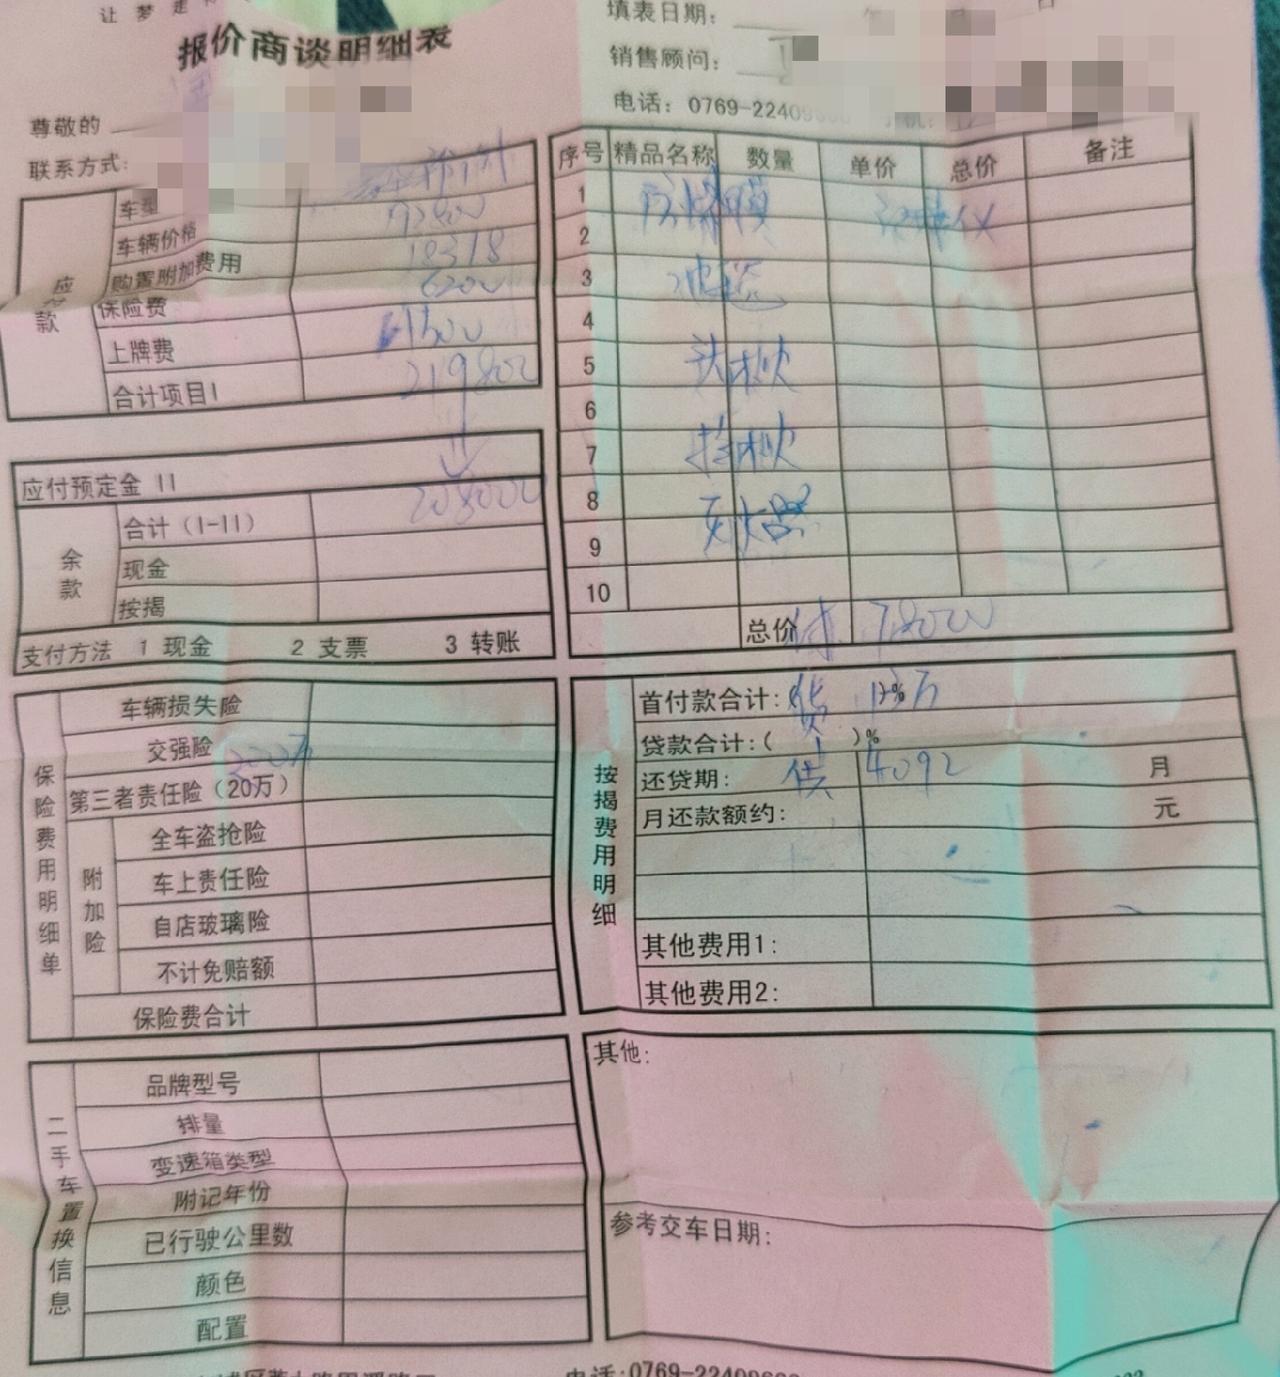 让梦走
报价商谈明细表
填表日期:
销售顾问:
电话: 0769-22409
尊敬的
联系方式:
应 款
车型
车辆价格
购置附加费用 18318
保险费 6200
上牌费 1500
合计项目I 219800
应付预定金 II
余款
合计（I-II） 208000
现金
按揭
支付方法 1 现金 2 支票 3 转账
序号 精品名称 数量 单价 总价 备注
1 防爆膜
2
3 地毯
4
5 头枕
6
7 抱枕
8 灭火器
9
10
总价 付 78000
保险费用明细单
车辆损失险
交强险
第三者责任险（20万） 200万
附加险
全车盗抢险
车上责任险
自店玻璃险
不计免赔额
保险费合计
按揭费用明细
首付款合计: 贷 13万
贷款合计:( )%
还贷期: 供 4092 月
月还款额约: 元
其他费用1:
其他费用2:
二手车置换信息
品牌型号
排量
变速箱类型
附记年份
已行驶公里数
颜色
配置
其他:
参考交车日期:
电话:0769-22409